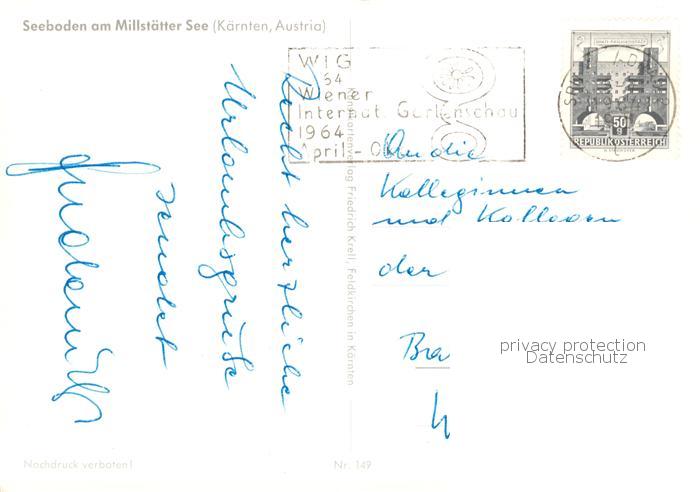 Seeboden am Millstätter See (Kärnten, Austria)
WIG
64
Wiener
Internat. Gartenschau
1964
April - O
REPUBLIK ÖSTERREICH
50
g
Recht herzliche
Urlaubsgrüße
sendet
An die
Kolleginnen
und Kollegen
der
Bra
privacy protection
Datenschutz
Friedrich Krell, Feldkirchen in Kärnten
Nachdruck verboten!
Nr. 149